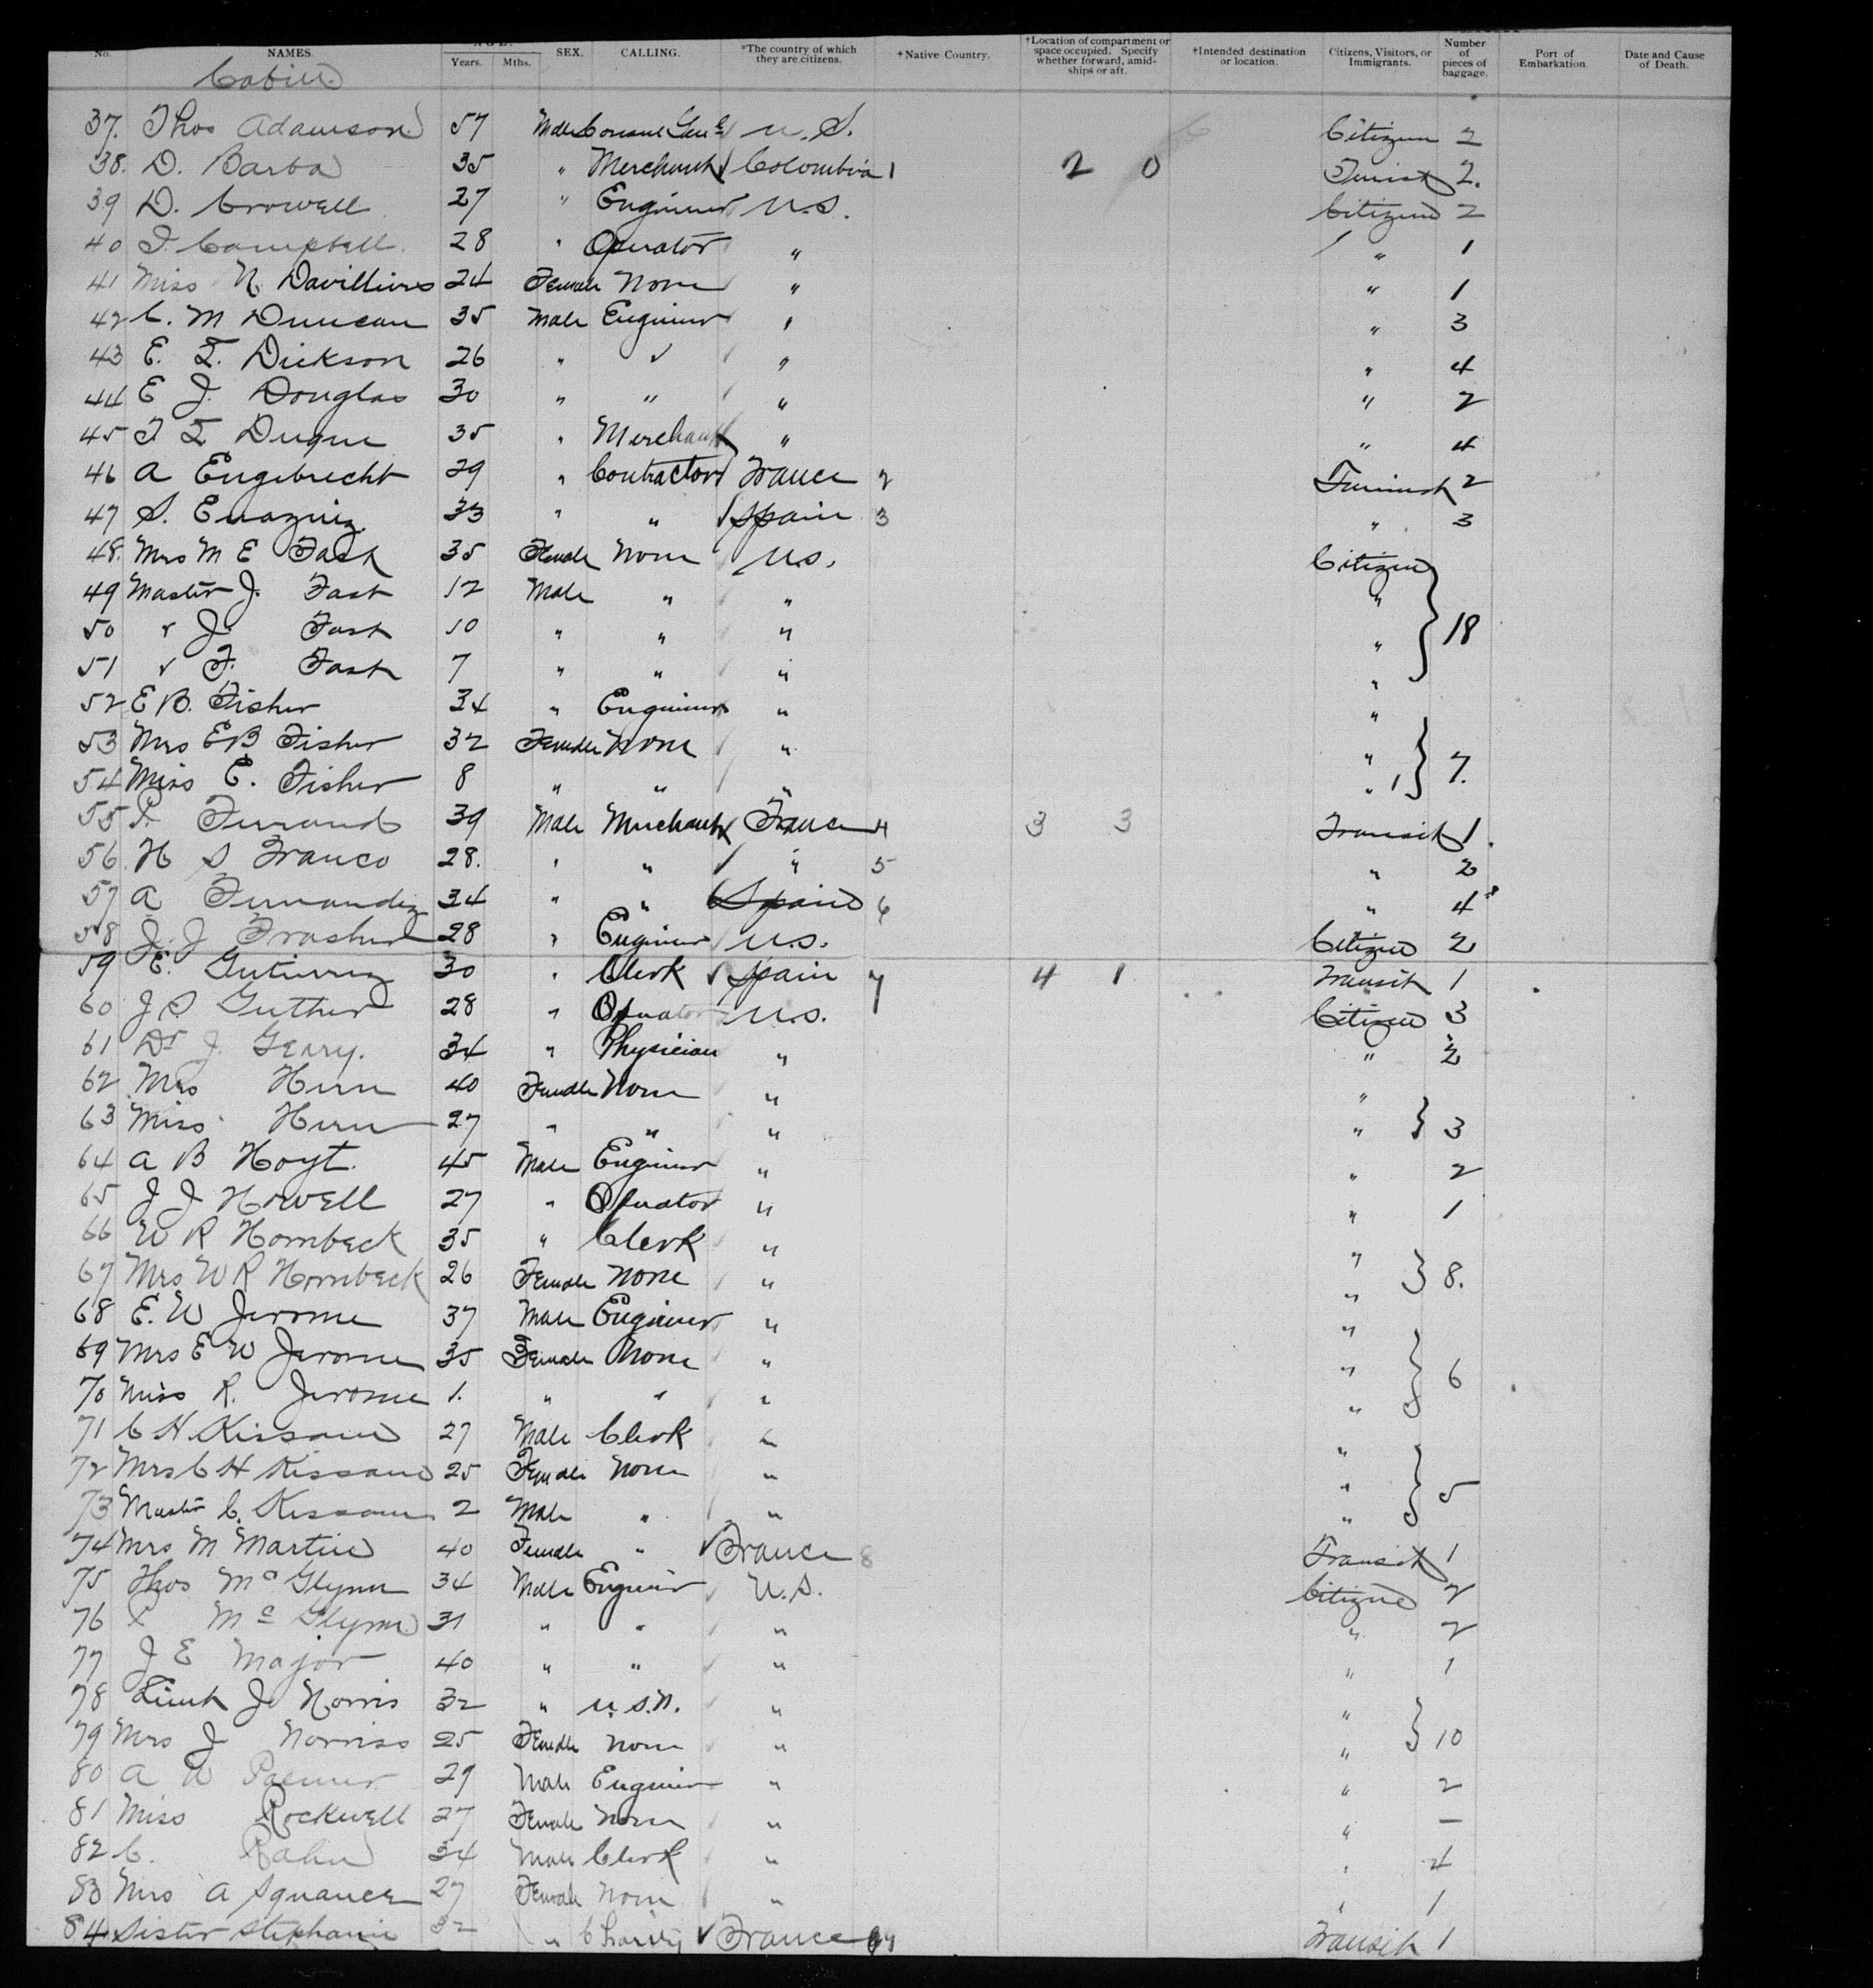 No. NAMES. Years. Mths. SEX. CALLING. *The country of which they are citizens. †Native Country. †Location of compartment or space occupied. Specify whether forward, amidships or aft. †Intended destination or location. Citizens, Visitors, or Immigrants. Number of pieces of baggage. Port of Embarkation. Date and Cause of Death.
Cabin
37. Thos Adamson 57 Male Consul Genl U.S. Citizen 2
38. D. Barba 35 " Merchant Colombia 1 2 0 2.
39 D. Crowell 27 " Engineer U.S. Citizen 2
40 J. Campbell 28 " Operator " " 1
41 Miss N. Davilliers 24 Female None " " 1
42 C. M Duncan 35 Male Engineer " " 3
43 E. T. Dickson 26 " " " " 4
44 E J. Douglas 30 " " " " 2
45 J T Duque 35 " Merchant " " 4
46 A Engebrecht 29 " Contractor France 2 2
47 S. 33 " " Spain 3 " 3
48. Mrs M E Fash 35 Female None U.S. Citizen
49 Master J. Fash 12 Male " " " } 18
50 " J. Fash 10 " " " "
51 " F. Fash 7 " " " "
52 E B. Fisher 34 " Engineer " "
53 Mrs E B Fisher 32 Female None " " } 7.
54 Miss E. Fisher 8 " " " "
55 P. 39 Male Merchant France 4 3 3 Transit 1.
56 H S Franco 28. " " " 5 " 2
57 A Fernandez 34 " " Spain 6 " 4
58 J. J Frasher 28 " Engineer U.S. Citizen 2
59 E. Gutierrez 30 " Clerk Spain 7 4 1 Transit 1
60 J S Guthrie 28 " Operator U.S. Citizen 3
61 Dr J. Geary. 34 " Physician " " 2
62 Mrs 40 Female None " "
63 Miss 27 " " " " } 3
64 A B Hoyt. 45 Male Engineer " " 2
65 J J Howell 27 " Operator " " 1
66 W R Hornbeck 35 " Clerk " "
67 Mrs W R Hornbeck 26 Female None " " } 8.
68 E. W Jerome 37 Male Engineer " "
69 Mrs E W Jerome 35 Female None " " } 6
70 Miss R. Jerome 1. " " " "
71 C H Kissam 27 Male Clerk " "
72 Mrs C H Kissam 25 Female None " " } 5
73 Master C. Kissam 2 Male " " "
74 Mrs M Martin 40 Female " France 8 Transit 1
75 Thos McGlynn 34 Male Engineer U.S. Citizen 2
76 McGlynn 31 " " " " 2
77 J E Major 40 " " " " 1
78 Lieut J. Norris 32 " U.S.N. " "
79 Mrs J Norriss 25 Female None " " } 10
80 A W Palmer 29 Male Engineer " " 2
81 Miss Rockwell 27 Female None " " –
82 C. Rahn 34 Male Clerk " " 4
83 Mrs A Squances 27 Female None " " 1
84. Sister Stephanie 32 " Charity France Transit 1